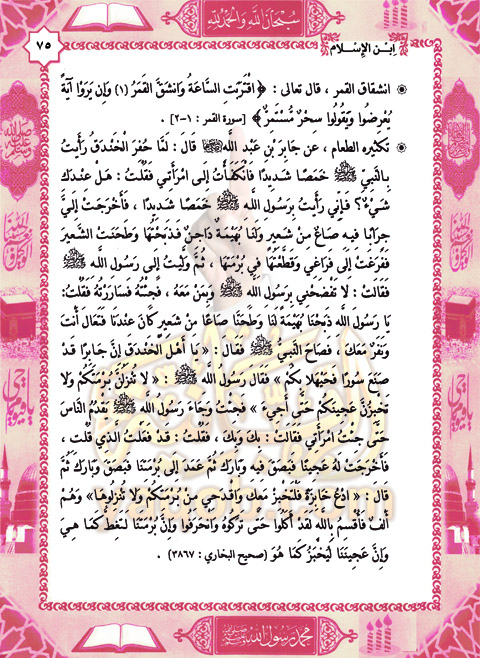 سُبْحَانَ اللَّهِ وَالْحَمْدُ لِلَّهِ
٧٥
اِبْن الإِسْلَام
انشقاق القمر ، قال تعالى : ﴿ اقْتَرَبَتِ السَّاعَةُ وَانشَقَّ الْقَمَرُ (١) وَإِن يَرَوْا آيَةً
يُعْرِضُوا وَيَقُولُوا سِحْرٌ مُّسْتَمِرٌّ ﴾ [سورة القمر : ١-٢] .
تكثيره الطعام ، عن جَابِرَ بْنَ عَبْدِ اللَّهِ ﷺ قَالَ : لَمَّا حُفِرَ الْخَنْدَقُ رَأَيْتُ
بِالنَّبِيِّ ﷺ خَمَصًا شَدِيدًا فَانْكَفَأْتُ إِلَى امْرَأَتِي فَقُلْتُ : هَلْ عِنْدَكِ
شَيْءٌ؟ فَإِنِّي رَأَيْتُ بِرَسُولِ اللَّهِ ﷺ خَمَصًا شَدِيدًا ، فَأَخْرَجَتْ إِلَيَّ
جِرَابًا فِيهِ صَاعٌ مِنْ شَعِيرٍ وَلَنَا بُهَيْمَةٌ دَاجِنٌ فَذَبَحْتُهَا وَطَحَنَتْ الشَّعِيرَ
فَفَرَغَتْ إِلَى فَرَاغِي وَقَطَّعْتُهَا فِي بُرْمَتِهَا ، ثُمَّ وَلَّيْتُ إِلَى رَسُولِ اللَّهِ ﷺ
فَقَالَتْ : لَا تَفْضَحْنِي بِرَسُولِ اللَّهِ ﷺ وَبِمَنْ مَعَهُ ، فَجِئْتُهُ فَسَارَرْتُهُ فَقُلْتُ:
يَا رَسُولَ اللَّهِ ذَبَحْنَا بُهَيْمَةً لَنَا وَطَحَنَّا صَاعًا مِنْ شَعِيرٍ كَانَ عِنْدَنَا فَتَعَالَ أَنْتَ
وَنَفَرٌ مَعَكَ ، فَصَاحَ النَّبِيُّ ﷺ فَقَالَ : « يَا أَهْلَ الْخَنْدَقِ إِنَّ جَابِرًا قَدْ
صَنَعَ سُورًا فَحَيَّهَلًا بِكُمْ » فَقَالَ رَسُولُ اللَّهِ ﷺ : « لَا تُنْزِلُنَّ بُرْمَتَكُمْ وَلَا
تَخْبِزُنَّ عَجِينَكُمْ حَتَّى أَجِيءَ » فَجِئْتُ وَجَاءَ رَسُولُ اللَّهِ ﷺ يَقْدُمُ النَّاسَ
حَتَّى جِئْتُ امْرَأَتِي فَقَالَتْ : بِكَ وَبِكَ ، فَقُلْتُ : قَدْ فَعَلْتُ الَّذِي قُلْتِ ،
فَأَخْرَجَتْ لَهُ عَجِينًا فَبَصَقَ فِيهِ وَبَارَكَ ثُمَّ عَمَدَ إِلَى بُرْمَتِنَا فَبَصَقَ وَبَارَكَ ثُمَّ
قَالَ : « ادْعُ خَابِزَةً فَلْتَخْبِزْ مَعِي وَاقْدَحِي مِنْ بُرْمَتِكُمْ وَلَا تُنْزِلُوهَا» وَهُمْ
أَلْفٌ فَأُقْسِمُ بِاللَّهِ لَقَدْ أَكَلُوا حَتَّى تَرَكُوهُ وَانْحَرَفُوا وَإِنَّ بُرْمَتَنَا لَتَغِطُّ كَمَا هِيَ
وَإِنَّ عَجِينَنَا لَيُخْبَزُ كَمَا هُوَ (صحيح البخاري : ٣٨٦٧) .
محمد رسول الله ﷺ